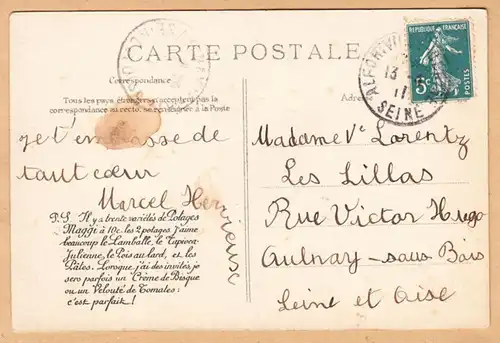 CARTE POSTALE
Correspondance
Tous les pays étrangers n'acceptent pas la
correspondance au recto, se renseigner à la Poste
je t'embrasse de
tout cœur
Marcel Hervieuse
P.S. Il y a trente variétés de Potages
Maggi à 10c. les 2 potages. J'aime
beaucoup le Lamballe, le Tapioca
Julienne, le Pois au lard, et les
Pâtes. Lorsque j'ai des invités, je
sers parfois un Crème de Bisque
ou un Velouté de Tomates:
c'est parfait!
REPUBLIQUE FRANÇAISE
5c
POSTES
ALFORTVILLE
13
11
SEINE
Madame Ve Lorentz
Les Lillas
Rue Victor Hugo
Aulnay-sous Bois
Seine et Oise